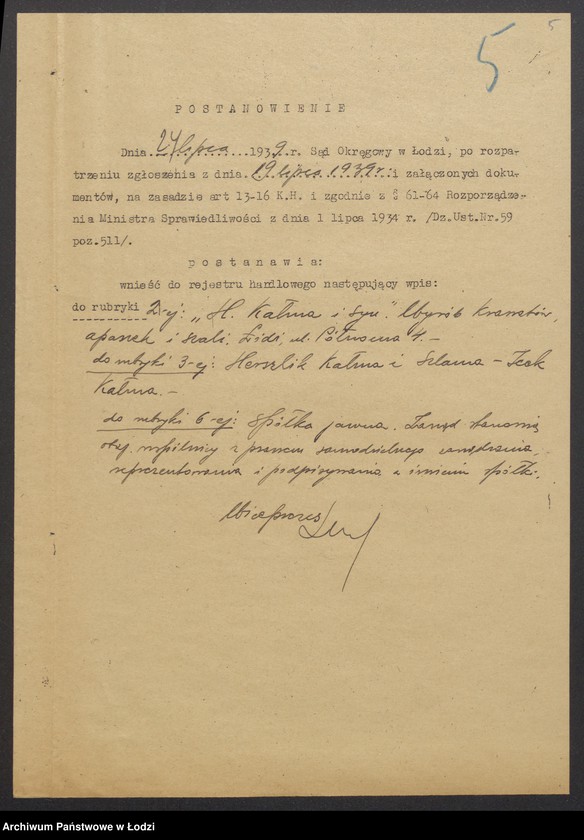 5
5
POSTANOWIENIE
Dnia 24 lipca 1939 r. Sąd Okręgowy w Łodzi, po rozpa-
trzeniu zgłoszenia z dnia 19 lipca 1939 r. i załączonych doku-
mentów, na zasadzie art 13-16 K.H. i zgodnie z § 61-64 Rozporządze-
nia Ministra Sprawiedliwości z dnia 1 lipca 1934 r. /Dz.Ust.Nr.59
poz.511/.
postanawia:
wnieść do rejestru handlowego następujący wpis:
do rubryki 2-ej: „H. Kałma i Syn". Wyrób krawatów,
apaszek i szali, Łódź, ul. Północna 4. –
do rubryki 3-ej: Herszlik Kałma i Szlama – Icek
Kałma. –
do rubryki 6-ej: Spółka jawna. Zarząd stanowią
obaj wspólnicy z prawem samodzielnego zarządzania,
reprezentowania i podpisywania w imieniu spółki.
Wiceprezes
Archiwum Państwowe w Łodzi